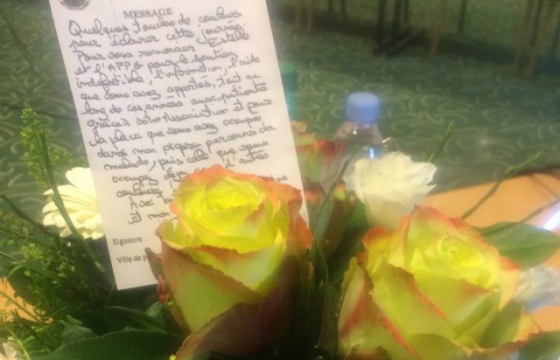 MESSAGE
Quelques touches de couleurs
pour éclairer cette journée
Pour vous remercier Estelle
et l'APP pour le soutien
indéfectible, l'information, l'aide
que vous avez apportés, tout au
long de ces années aux patients
grâce à votre association et pour
la place que vous avez occupée
dans mon propre parcours de
malade, puis celle que vous
occupez
Avec
et mon
Signature
Ville de